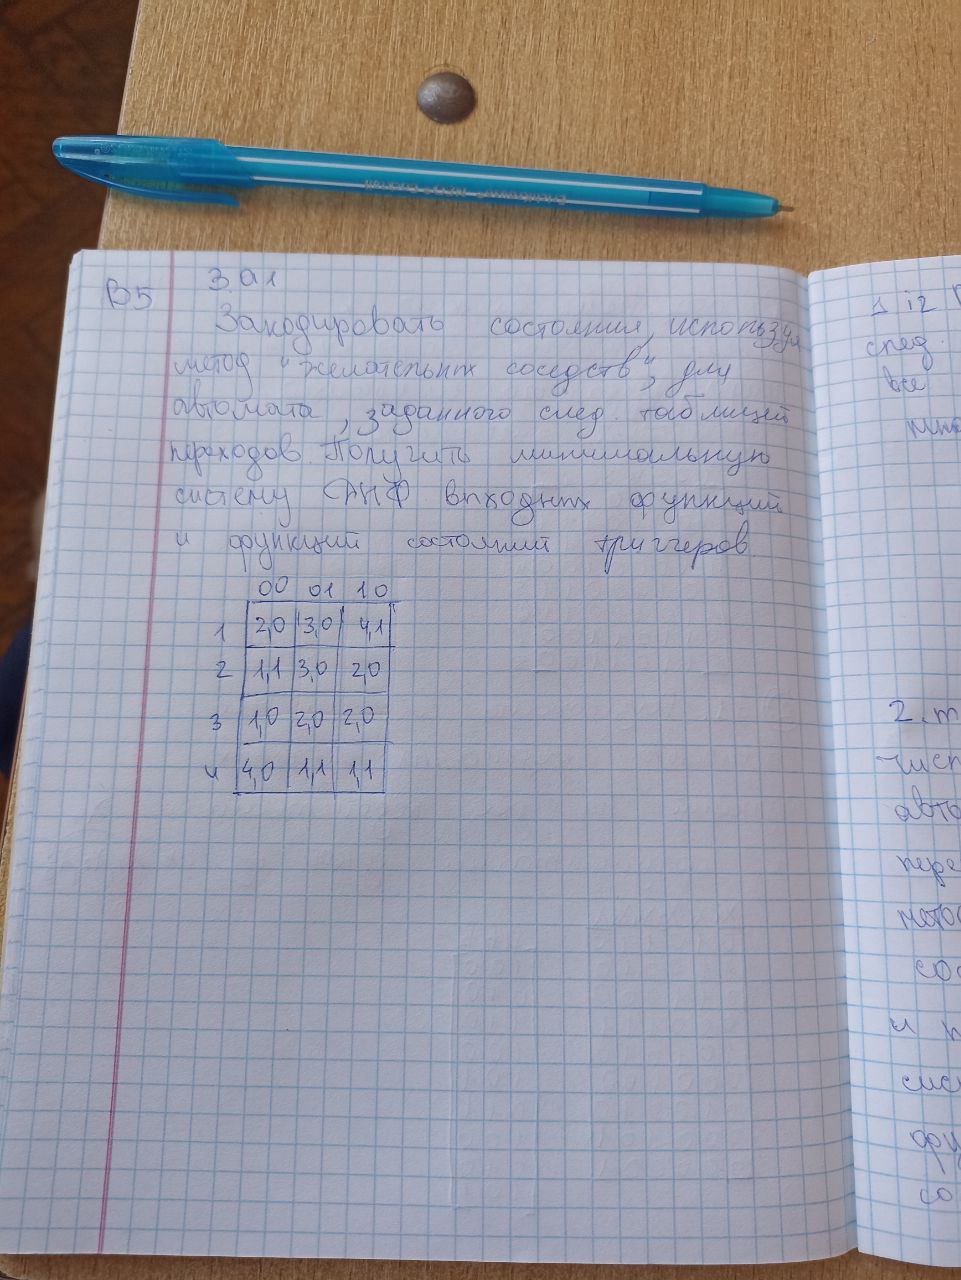 В5 З.а1
Закодировать состояния, используя
метод "желательных соседств", для
автомата, заданного след. таблицей
переходов. Получить минимальную
систему ДНФ выходных функций
и функций состояний триггеров.
00 01 10
1 2,0 3,0 4,1
2 1,1 3,0 2,0
3 1,0 2,0 2,0
4 4,0 1,1 1,1
след.
все
2.